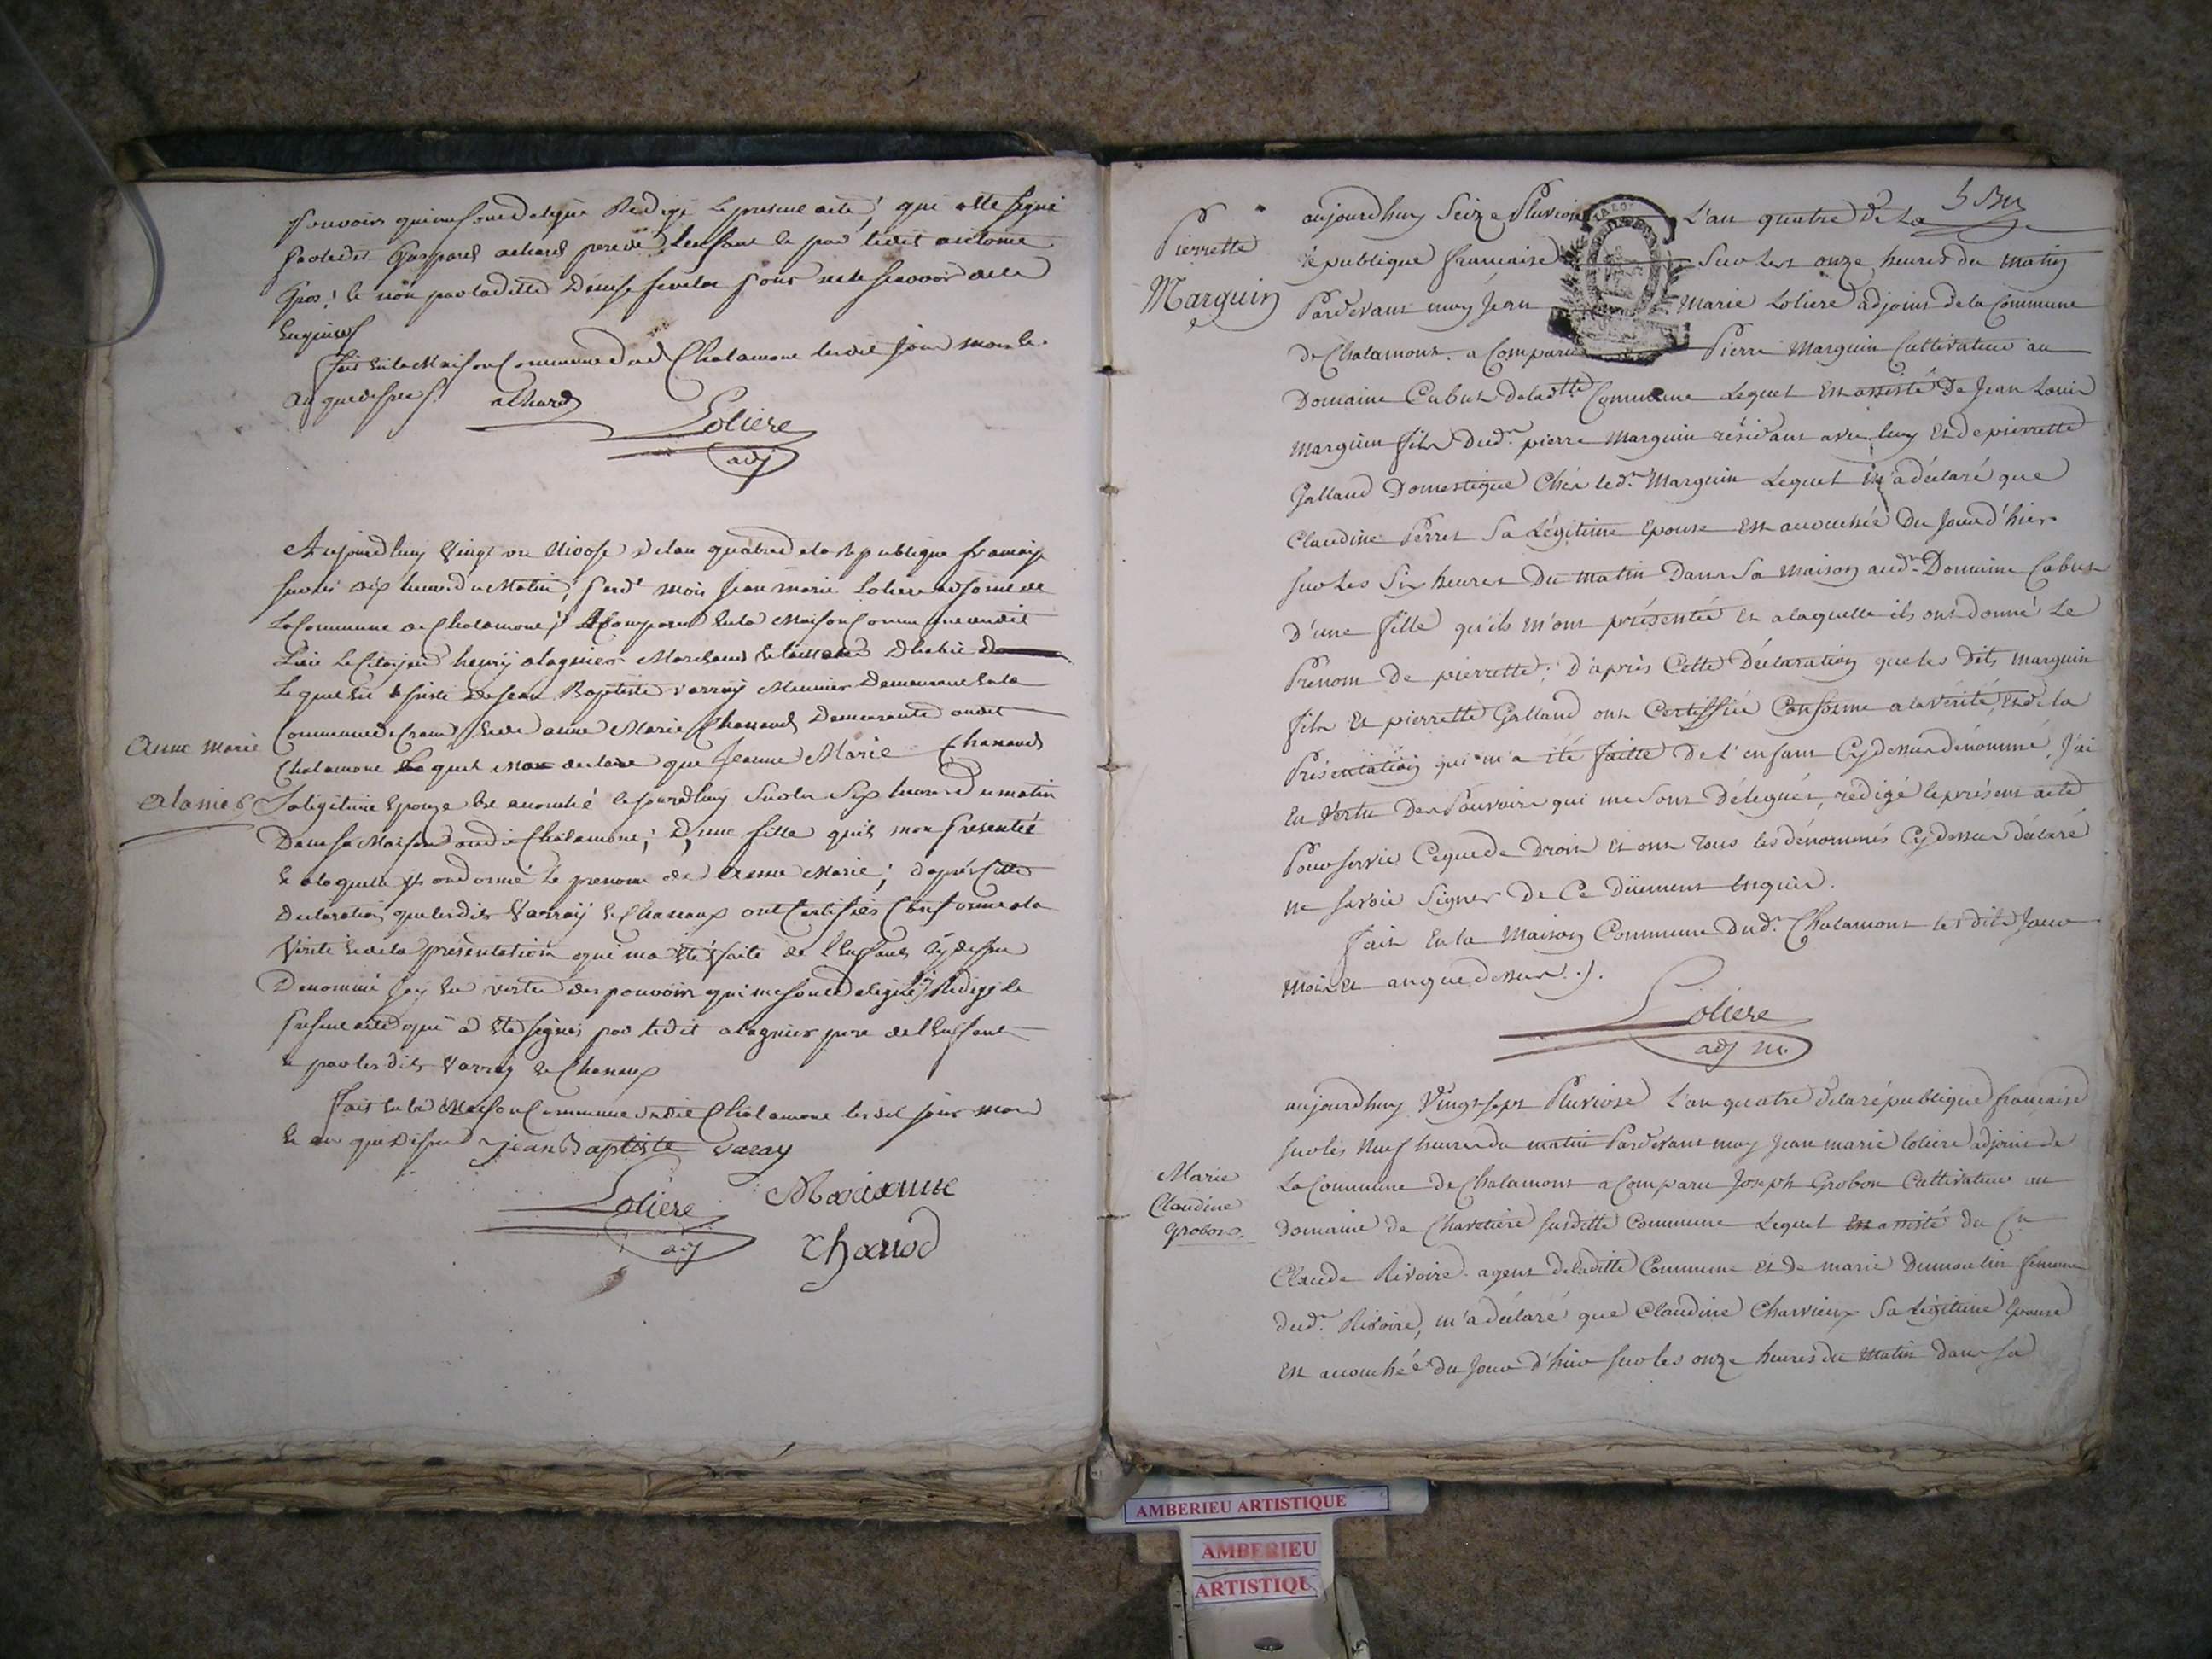 pouvoirs qui me sont délégué Rédigé le present acte, qui a été signé
par ledit Gaspard achard pere de l'enfant & par ledit antoine
& non par ladite Denise pour ne le scavoir de ce
Enquise
fait en la Maison Commune dud Chalamont lesdit jour mois &
an que dessus achard
Loliere
adj
Aujourdhuy Vingt un Nivose de lan quatre de la République francaise
sur les dix heures du Matin, pard moi Jean marie Loliere adjoint de
la Commune de Chalamont, a Comparu en la Maison Commune audit
Lieu le Citoyen henry alagnier Marchand
Lequel de Jean Baptiste varray Meunier Demeurant en la
Commune de Crans & de anne Marie Chanaud Demeurante audit
Anne marie
Chalamont Lequel ma declaré que Jeanne Marie Chanaud
alanier
Sa légitime Epouze est accouché ce jourdhuy sur les Sep heures du matin
Dans sa Maison audit Chalamont; D'une fille quils mon presentée
& a laquelle ils on donné le prenom de anne Marie; daprès Cette
Declaration que lesdits Varray & Chanaux ont Certifiés Conforme a la
Vérité & de la présentation qui ma été faite de l'Enfant cy dessus
Denommé jay En vertu des pouvoirs qui me sont délégués Rédigé le
present acte qui a été signés par ledit alagnier pere de l'Enfant
& par lesdits Varray & Chanaux
fait en la Maison Commune dudit Chalamont lesdit jour mois
& an que Dessus jean Baptiste varay
Loliere Marianne
adj chanod
5 Bu
Pierrette
Marguin
aujourdhuy Seize Pluviose L'an quatre de La
république francaise Sur Les onze heures du matin
Pardevant moy Jean Marie Loliere adjoint de la Commune
de Chalamont. a Comparu Pierre Marguin Cultivateur au
Domaine Cabut de ladtte Commune Lequel Est assisté De Jean Louis
Marguin fils Dud. pierre Marguin résidant avec luy Et de pierrette
Galland Domestique Chés led. Marguin Lequel m'a déclaré que
Claudine Perret Sa Légitime Epouse Est accouchée Du Jour d'hier
sur les Six heures Du matin Dans Sa maison aud. Domaine Cabut
D'une fille qu'ils m'ont présentée Et a laquelle ils ont donné Le
Prénom De pierrette; D'après Cette Déclaration que les Dits Marguin
fils Et pierrette Galland ont Certiffié Conforme a la vérité, Et de la
Présentation qui m'a été faitte De l'enfant Cy dessus dénommé, J'ai
En Vertu Des Pouvoirs qui me Sont Délégués, rédigé le présent acte
Pour servir Ceque de Droit Et ont Tous les dénommés Cy dessus déclaré
ne savoir Signer De Ce Düement Enquis.
Fait En la Maison Commune Dud. Chalamont les dits Jour
Mois Et an que dessus.
Loliere
adj m.
aujourdhuy Vingt sept Pluviose L'an quatre de la république francaise
sur les Neuf heures du matin Pardevant moy Jean marie loliere adjoint de
Marie
La Commune de Chalamont a Comparu Joseph Grobon Cultivateur au
Claudine
Grobon.
Domaine de Charetiere susditte Commune Lequel Est assisté du Cn
Claude Rivoire agent de laditte Commune Et de marie Dumoulin femme
dud. Rivoire, m'a déclaré que Claudine Charvieux Sa légitime Epouse
Est accouchée du Jour d'hier sur les onze heures du matin dans sa
AMBERIEU ARTISTIQUE
AMBERIEU
ARTISTIQU